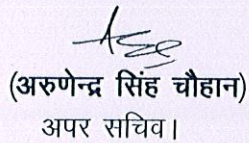 (अरुणेन्द्र सिंह चौहान)
अपर सचिव।